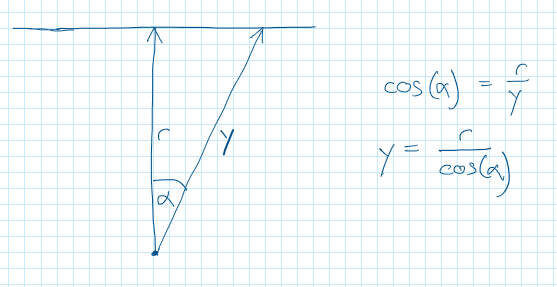 r
y
α
cos(α) = r/y
y = r/cos(α)